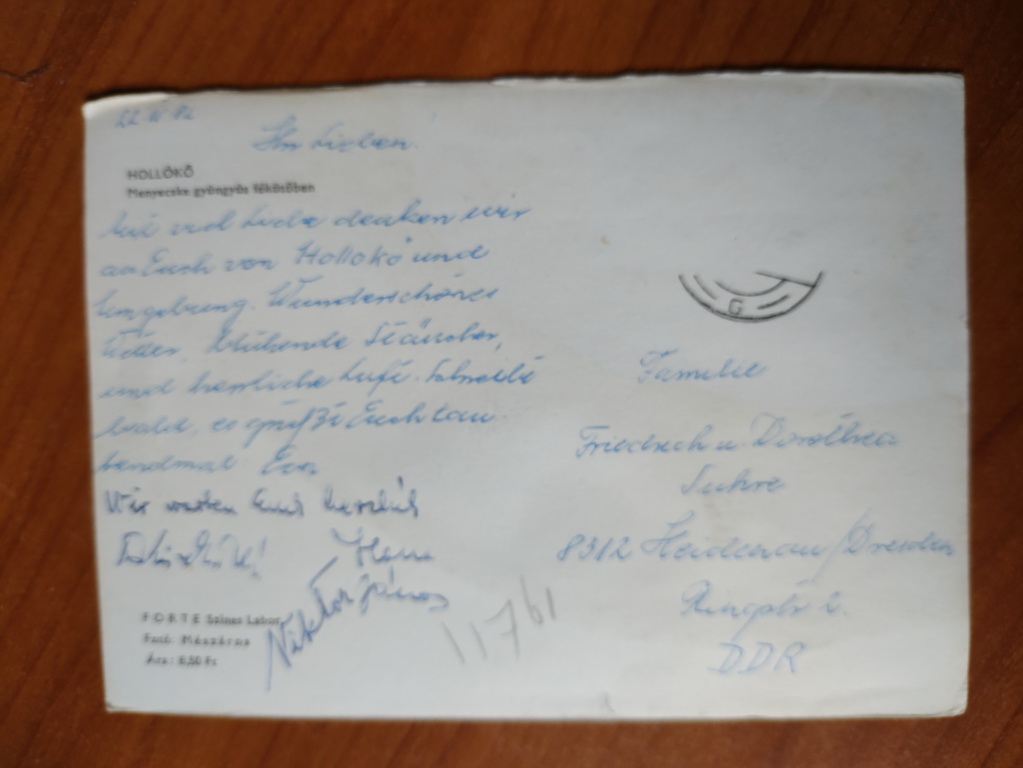 Ihr Lieben!
HOLLÓKŐ
Menyecske gyöngyös főkötőben
Mit viel Liebe denken wir
an Euch von Hollokö und
Umgebung. Wunderschönes
Wetter, blühende Sträucher,
und herrliche Luft. Schreibt
bald, es grüßt Euch tau
sendmal Eva
Wir warten Euch herzlich
Viktor János
FORTE Színes Labor
Fotó: Mészáros
Ára: 6,50 Ft
G
Familie
Friedrich u. Dorothea
Suhre
8312 Heidenau/Dresden
Ringstr 2.
DDR
11761